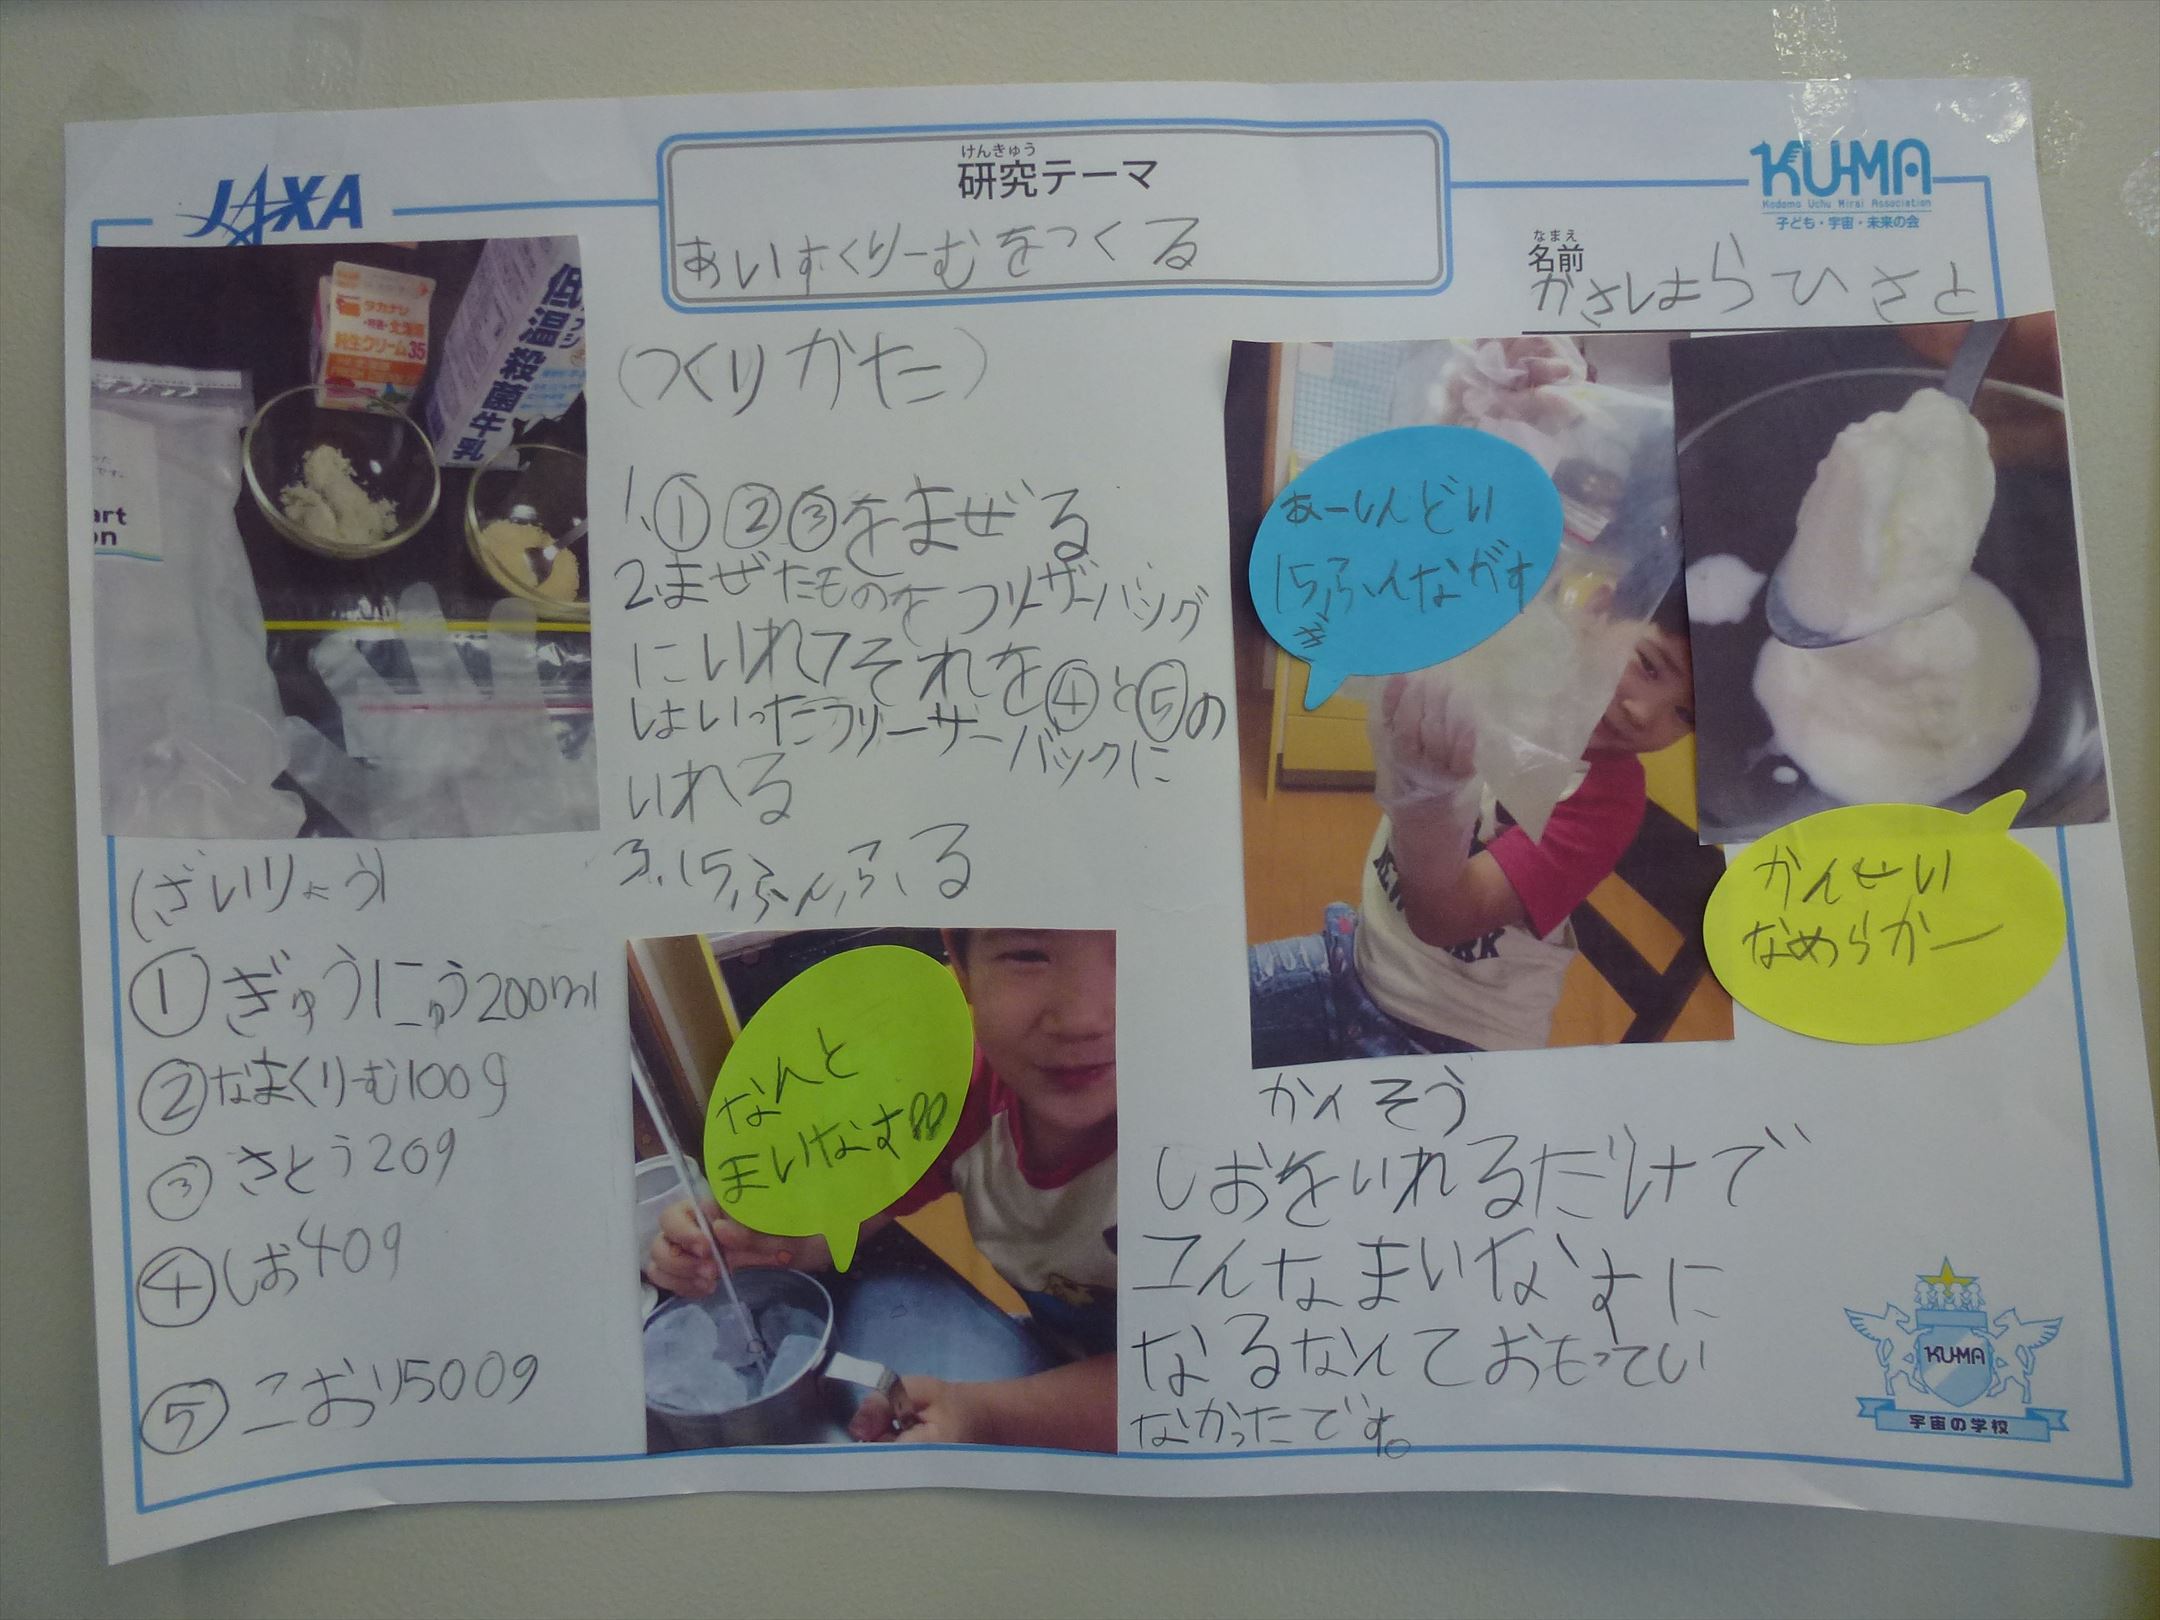 JAXA
けんきゅう
研究テーマ
あいすくりーむをつくる
KU-MA
Kodomo Uchu Mirai Association
子ども・宇宙・未来の会
なまえ
名前
かさはらひさと
タカナシ
純生クリーム35
低温殺菌牛乳
art
on
(ざいりょう)
①ぎゅうにゅう200ml
②なまくりーむ100g
③さとう20g
④しお40g
⑤こおり500g
(つくりかた)
1.①②③をまぜる
2.まぜたものをフリーザーバッグ
にいれてそれを④と⑤の
はいったフリーザーバックに
いれる
3.15ふんふる
なんと
まいなす
あーしんどい
15ふんながす
ぎ
かんせい
なめらかー
かんそう
しおをいれるだけで
こんなまいなすに
なるなんておもってい
なかったです。
KU-MA
宇宙の学校